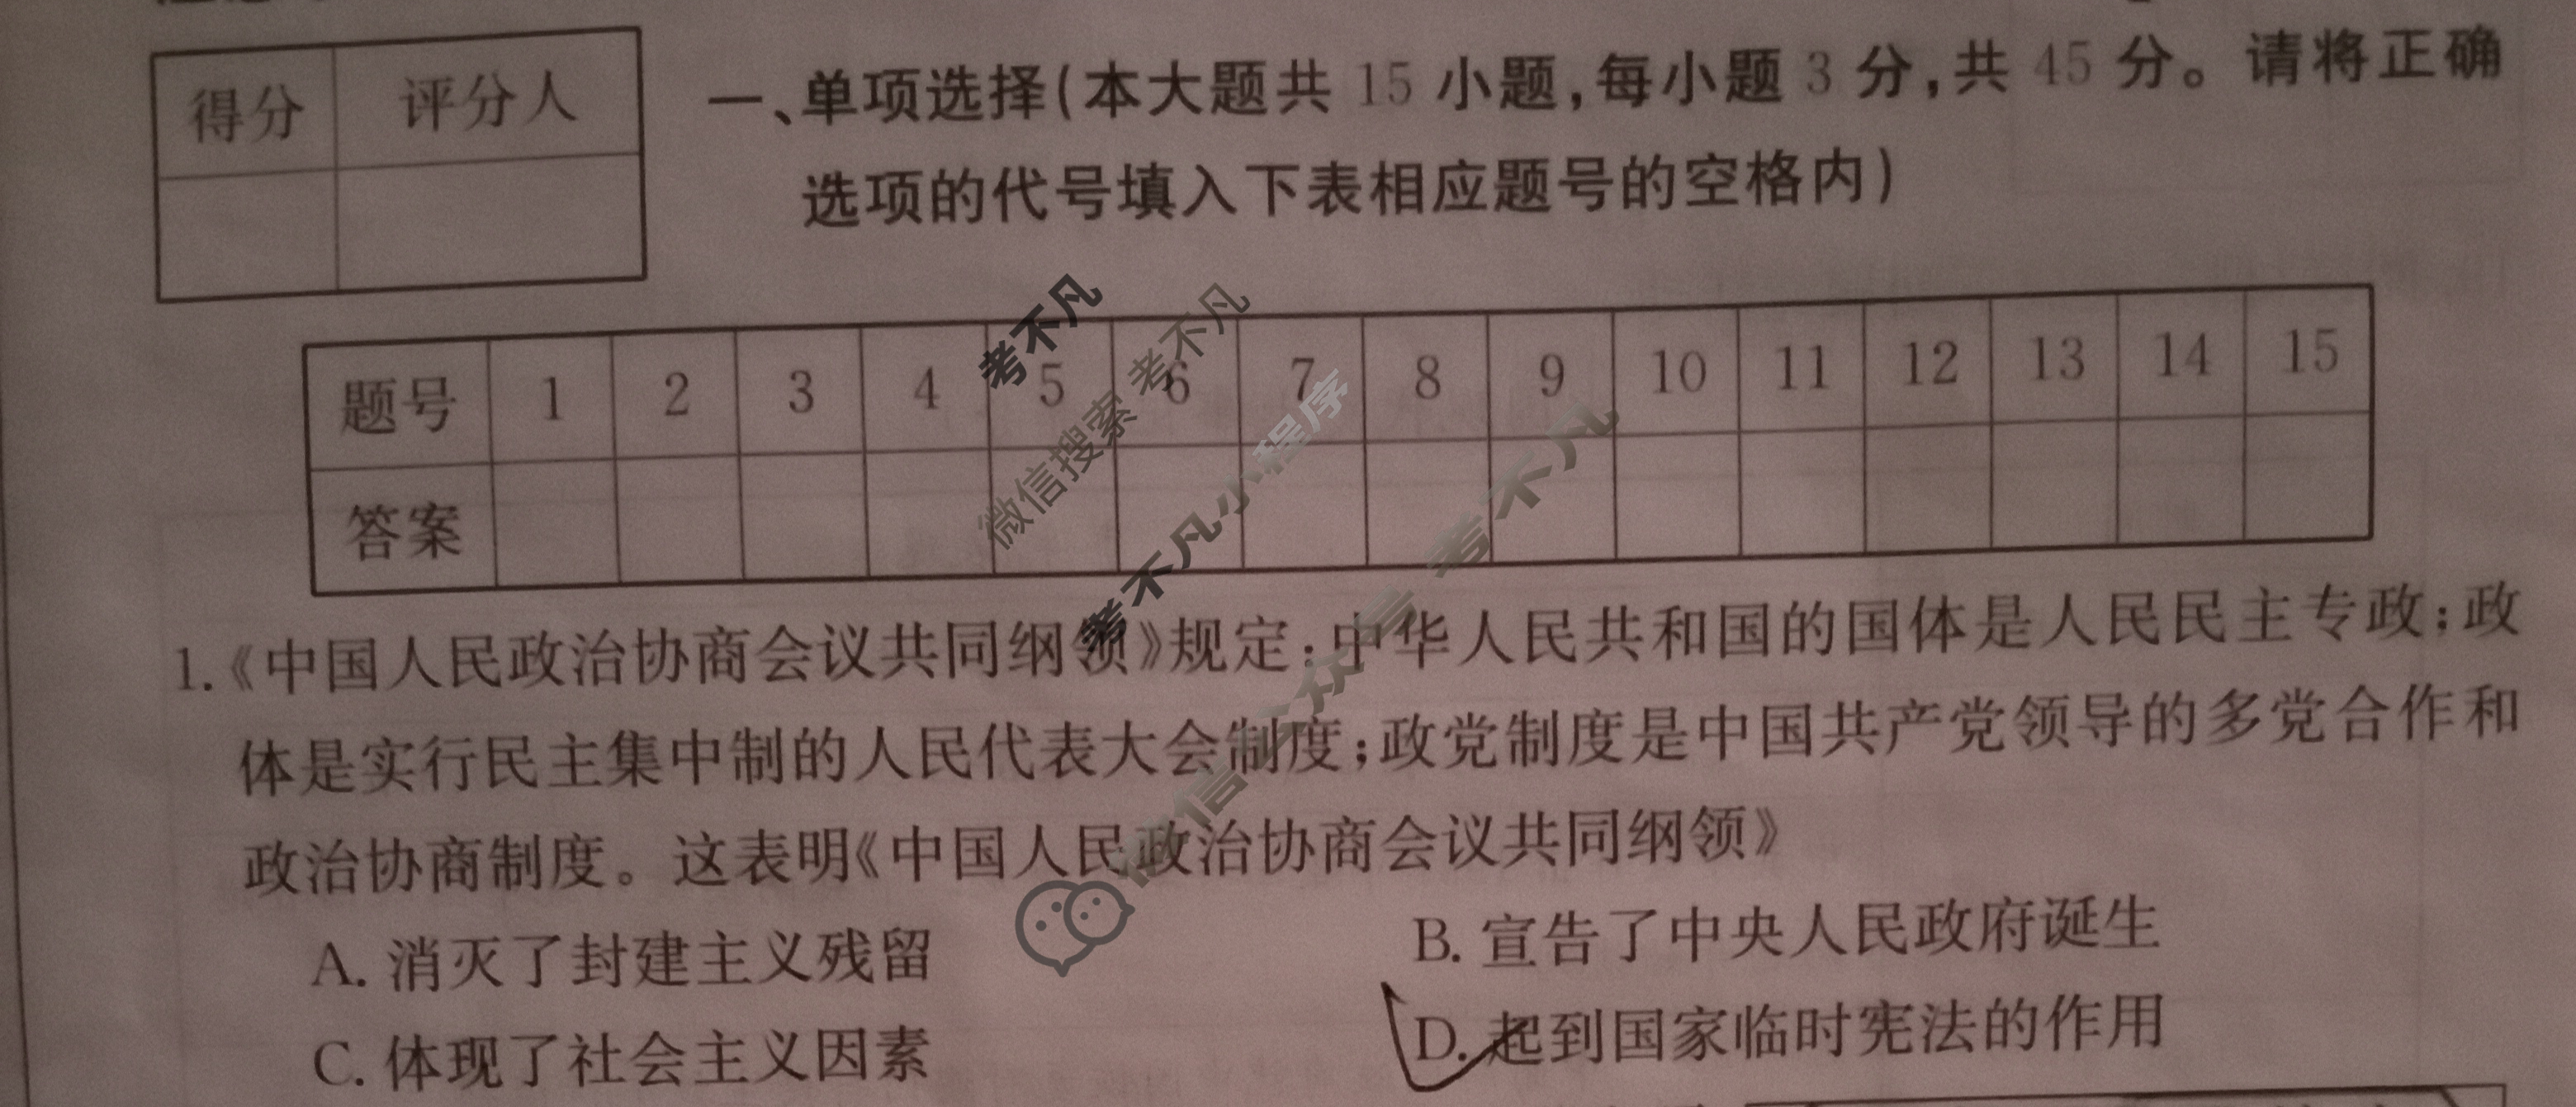 得分 评分人
一、单项选择(本大题共 15 小题,每小题 3 分,共 45 分。请将正确
选项的代号填入下表相应题号的空格内)
题号 1 2 3 4 5 6 7 8 9 10 11 12 13 14 15
答案
考不凡
微信搜索 考不凡
考不凡小程序
微信公众号 考不凡
1.《中国人民政治协商会议共同纲领》规定:中华人民共和国的国体是人民民主专政;政
体是实行民主集中制的人民代表大会制度;政党制度是中国共产党领导的多党合作和
政治协商制度。这表明《中国人民政治协商会议共同纲领》
A. 消灭了封建主义残留
B. 宣告了中央人民政府诞生
C. 体现了社会主义因素
D. 起到国家临时宪法的作用